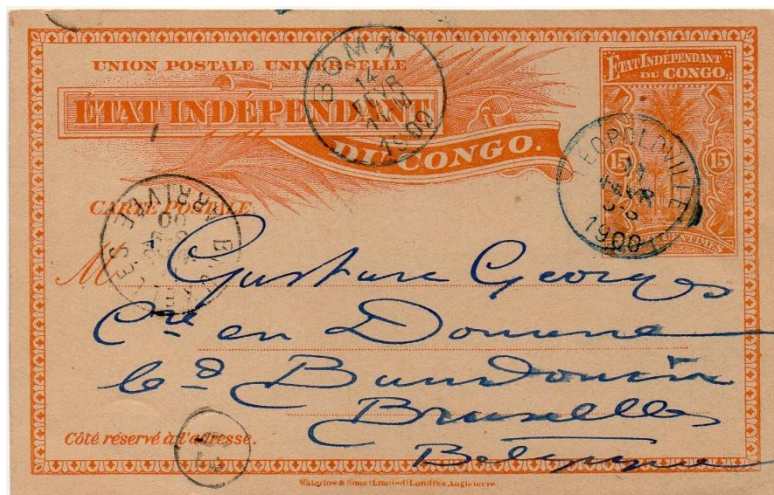 UNION POSTALE UNIVERSELLE
ÉTAT INDÉPENDANT
DU CONGO.
ÉTAT INDÉPENDANT
DU CONGO
15 15
CENTIMES
BOMA
14
FEVR
1900
LEOPOLDVILLE
11
FEVR
1900
CARTE POSTALE.
ARRIVEE
M Gustave Georges
en Douane
Bd Baudouin
Bruxelles
Belgique
Côté réservé à l'adresse.
Waterlow & Sons Limited Londres Angleterre.